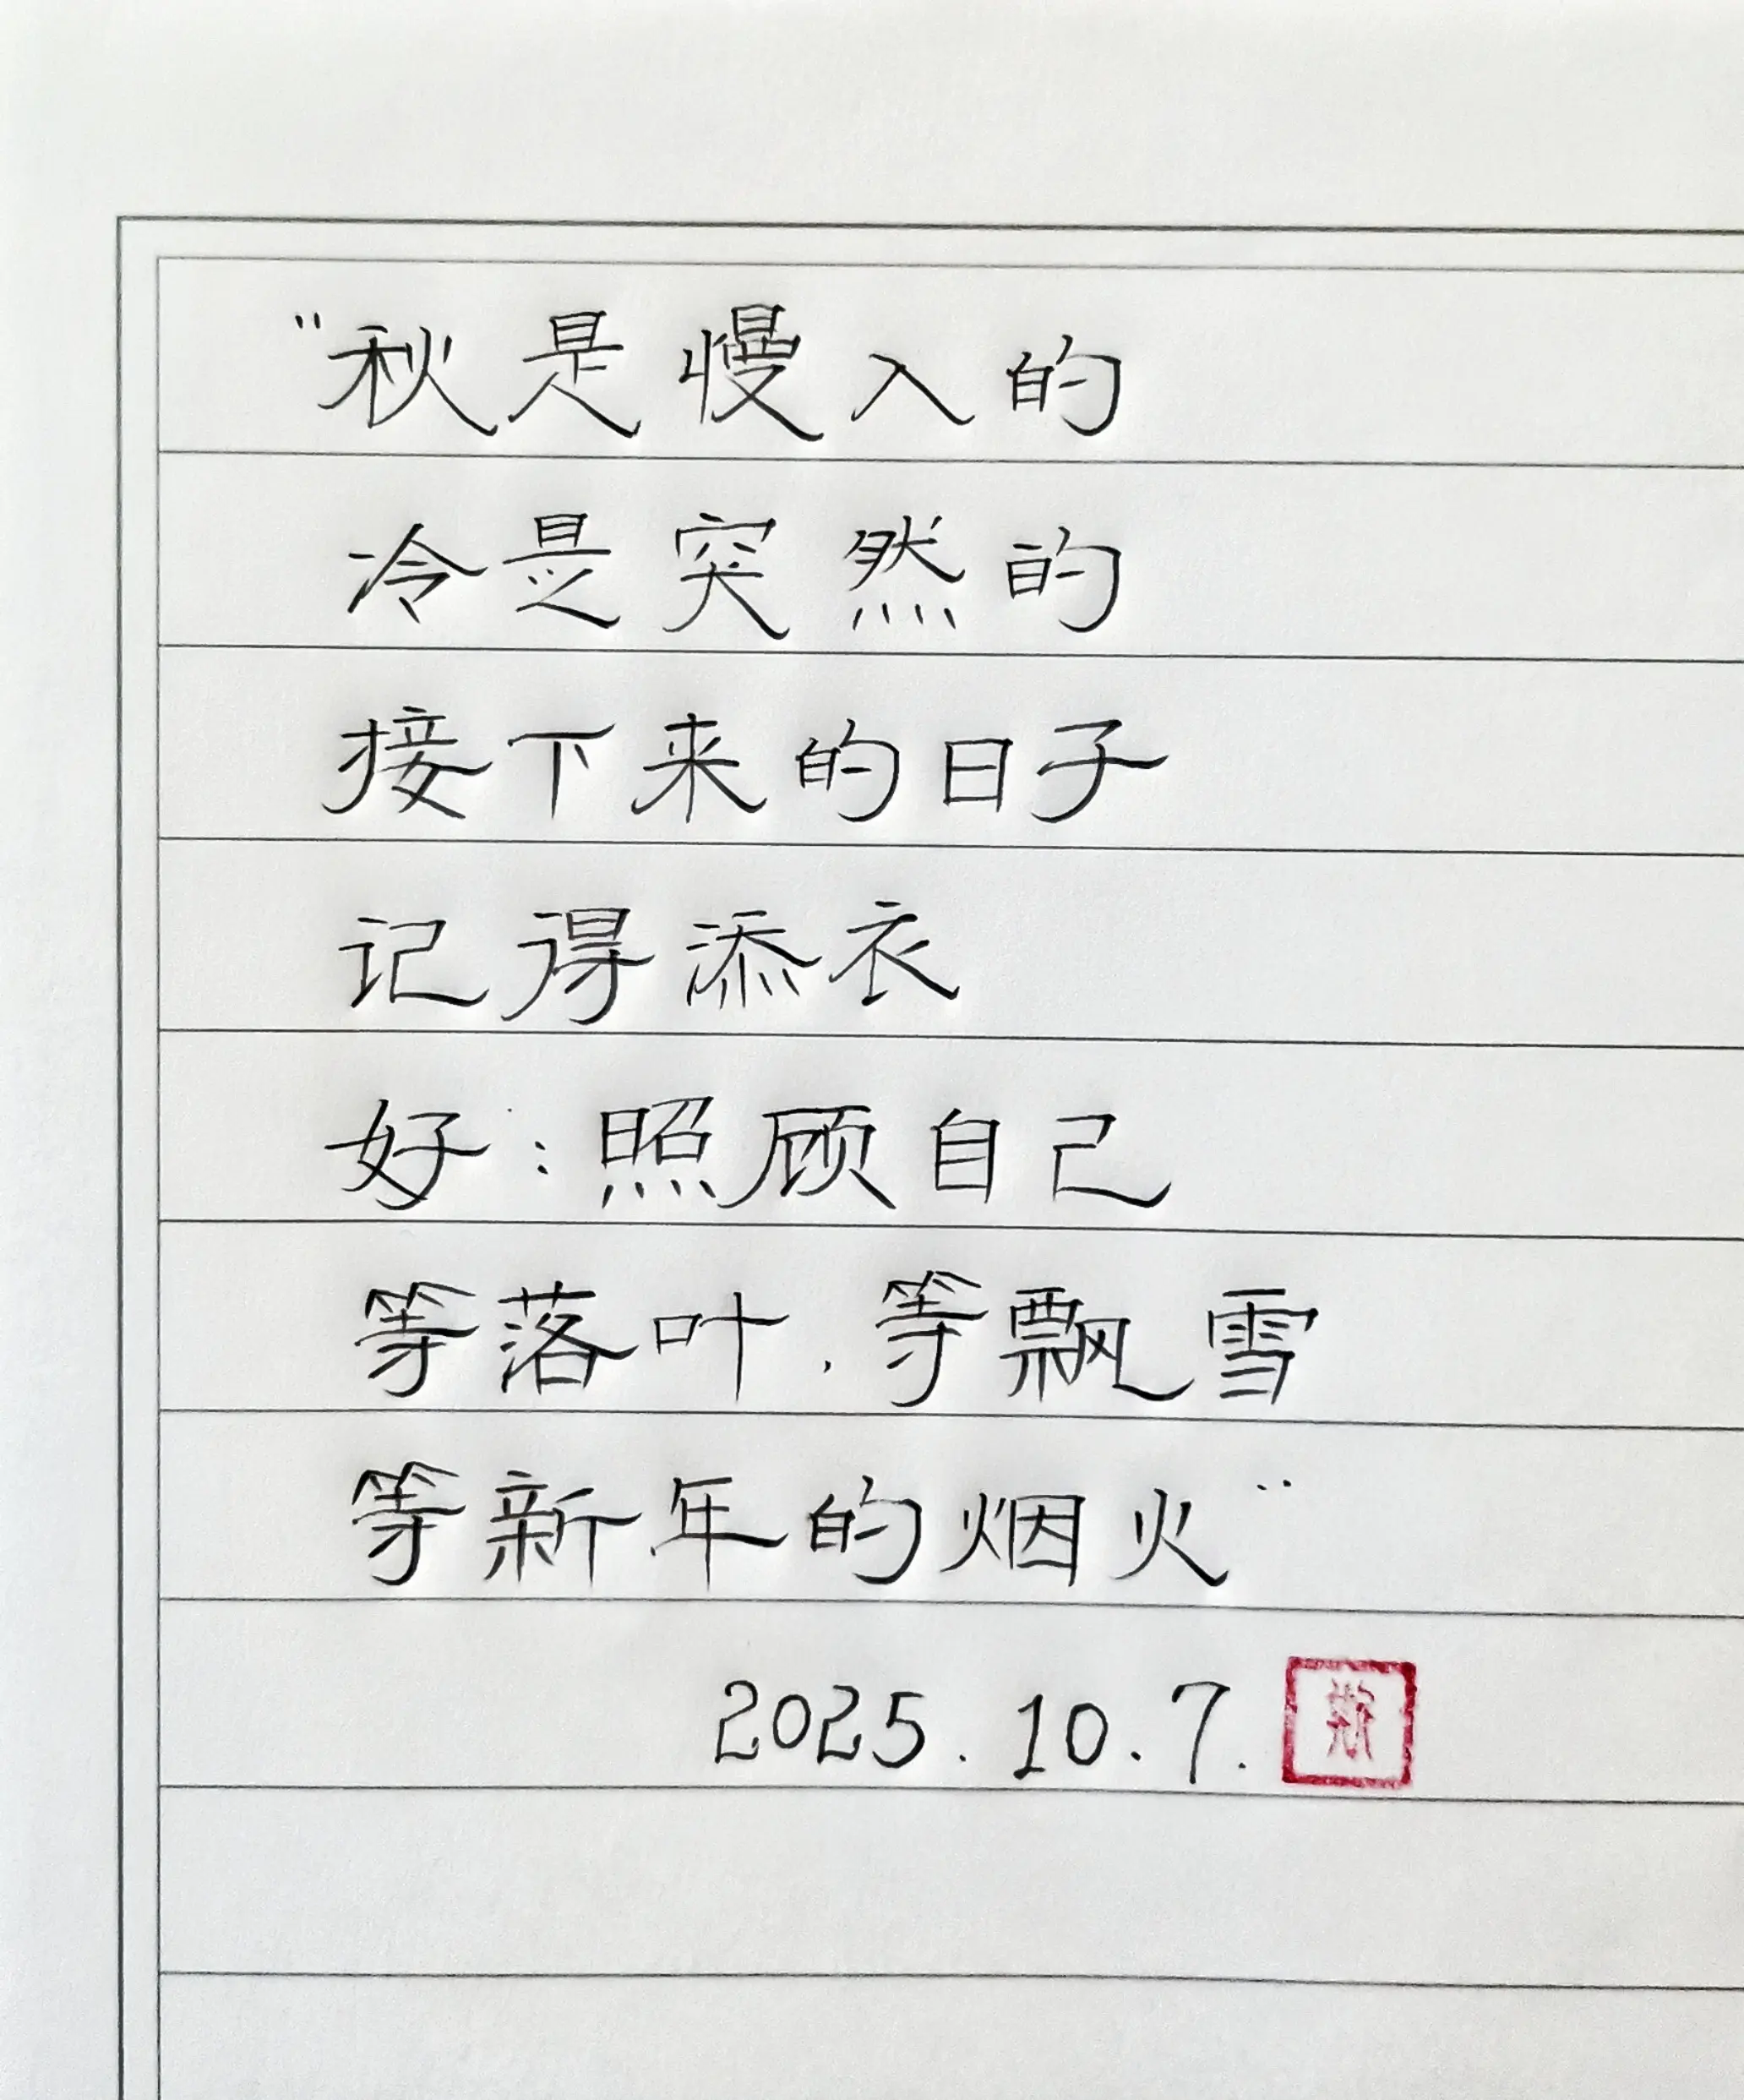 "秋是慢入的
冷是突然的
接下来的日子
记得添衣
好:照顾自己
等落叶,等飘雪
等新年的烟火"
2025.10.7.